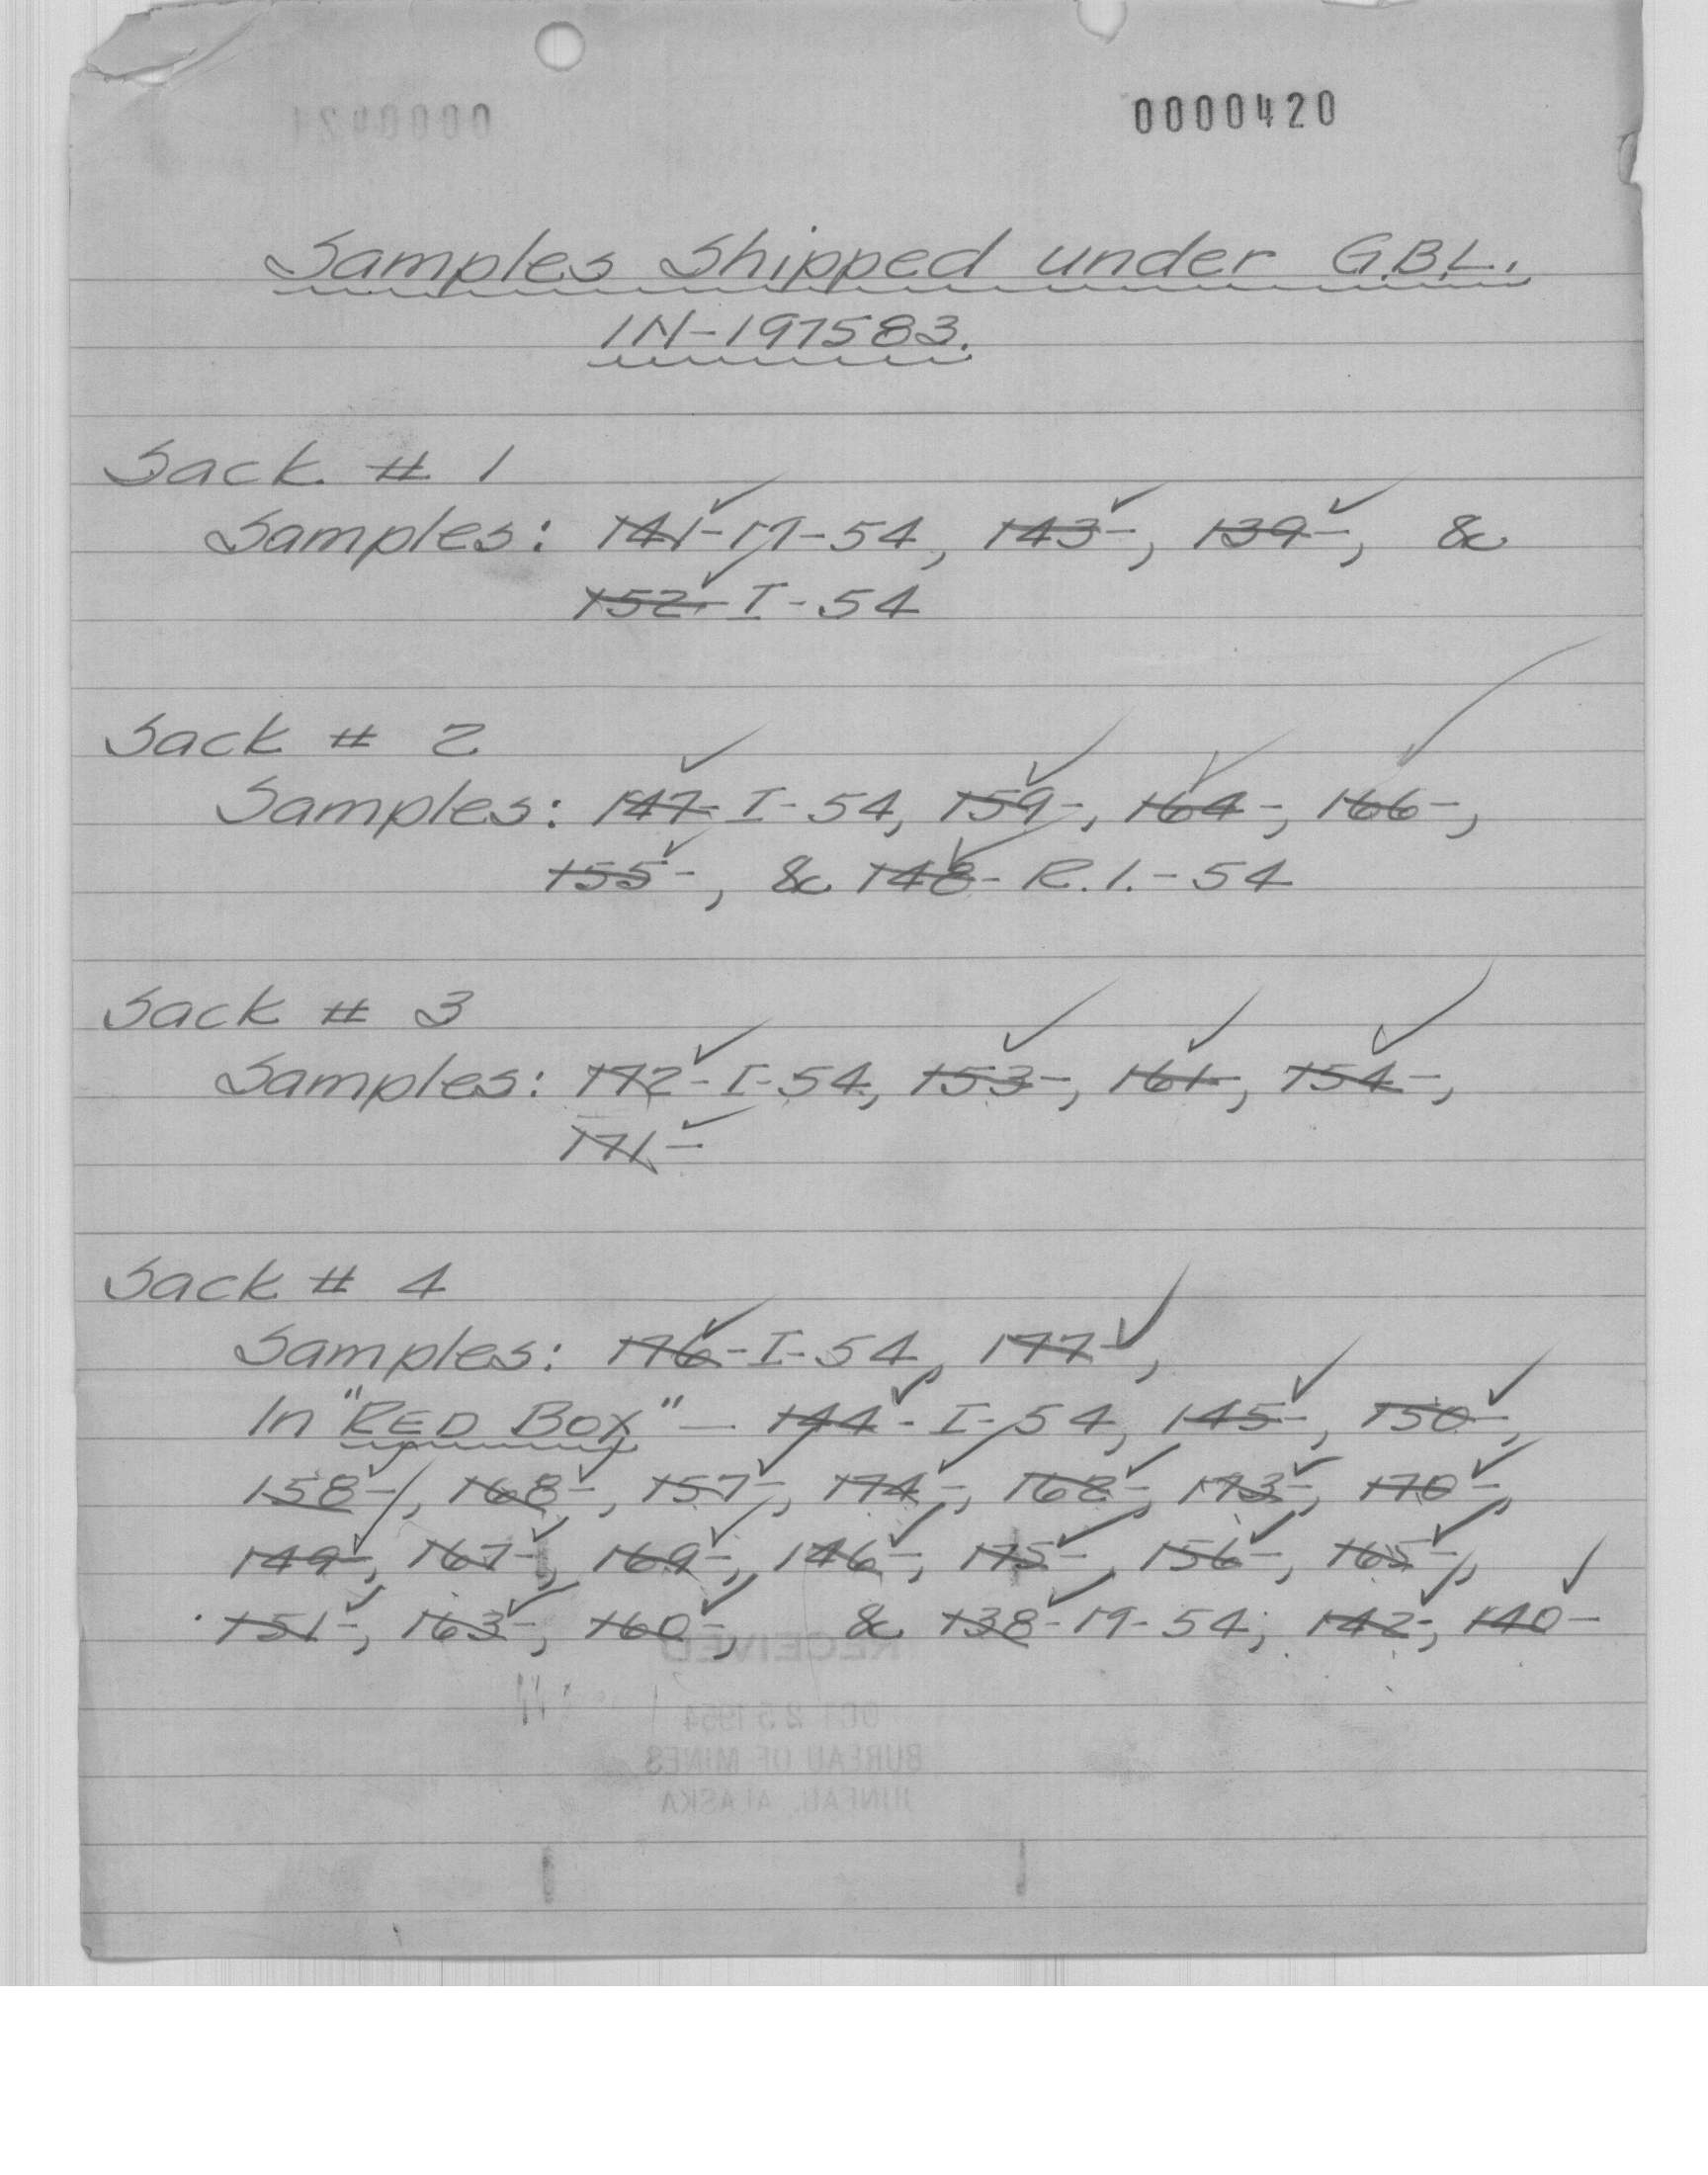 0000420
Samples Shipped under G.B.L.
IN-197583.
Sack # 1
Samples: 141-M-54, 143-, 139-, &
152-I-54
Sack # 2
Samples: 147-I-54, 159-, 164-, 166-,
155-, & 148-R.I.-54
Sack # 3
Samples: 172-I-54, 153-, 161-, 154-,
171-
Sack # 4
Samples: 176-I-54, 177-,
In "RED BOX" — 144-I-54, 145-, 150-,
158-, 168-, 157-, 174-, 168-, 173-, 170-,
149-, 167-, 169-, 146-, 175-, 156-, 165-,
151-, 163-, 160-, & 138-M-54; 142-, 140-
RECEIVED
OCT 25 1954
BUREAU OF MINES
JUNEAU, ALASKA